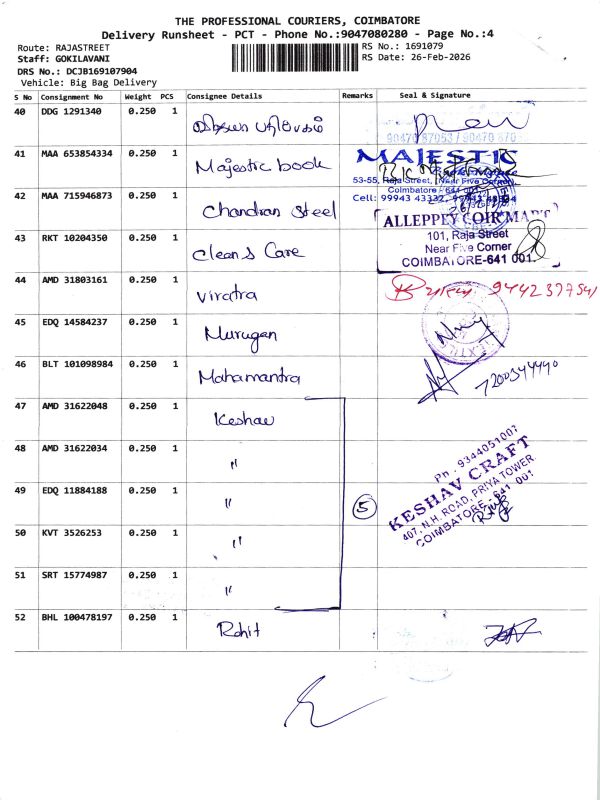 THE PROFESSIONAL COURIERS, COIMBATORE
Delivery Runsheet - PCT - Phone No.:9047080280 - Page No.:4
Route: RAJASTREET
RS No.: 1691079
Staff: GOKILAVANI
RS Date: 26-Feb-2026
DRS No.: DCJB169107904
Vehicle: Big Bag Delivery
S No Consignment No Weight PCS Consignee Details Remarks Seal & Signature
40 DDG 1291340 0.250 1
41 MAA 653854334 0.250 1 Majestic book
MAJESTIC
53-55, Raja Street, (Near Five Corner)
Coimbatore - 641 001.
Cell: 99943 43332,
42 MAA 715946873 0.250 1 Chandran Steel
ALLEPPEY COIR MART
101, Raja Street
Near Five Corner
COIMBATORE-641 001.
43 RKT 10204350 0.250 1 Clean & Care
44 AMD 31803161 0.250 1 Viratra
45 EDQ 14584237 0.250 1 Murugan
46 BLT 101098984 0.250 1 Mahamantra
47 AMD 31622048 0.250 1 Keshav
48 AMD 31622034 0.250 1 "
49 EDQ 11884188 0.250 1 " 5
Ph : 9344051007
KESHAV CRAFT
407, N.H. ROAD, PRIYA TOWER
COIMBATORE - 641 001
50 KVT 3526253 0.250 1 "
51 SRT 15774987 0.250 1 "
52 BHL 100478197 0.250 1 Rohit